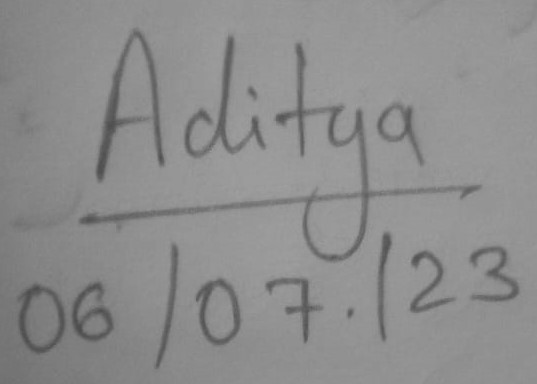 Aditya
06/07./23